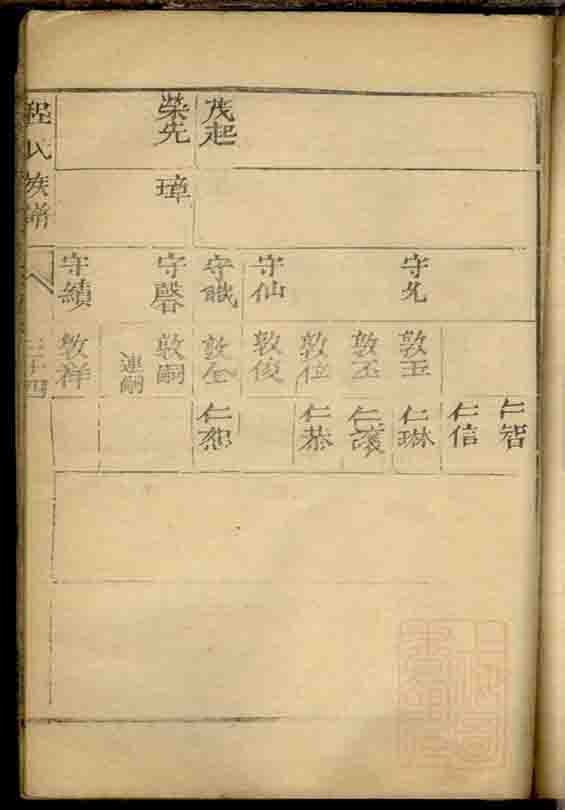 仁智
仁信
守允
敦玉
仁琳
敦丕
仁讓
敦位
仁恭
守仙
敦俊
茂起
守職
敦全
仁恕
榮先
璋
守馨
敦嗣
連嗣
守績
敦祥
程氏族譜
三十四